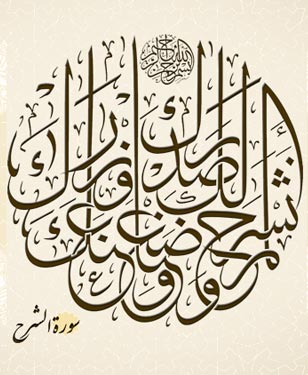 بسم الله الرحمن الرحيم
ألم نشرح لك صدرك ووضعنا عنك وزرك
سورة الشرح